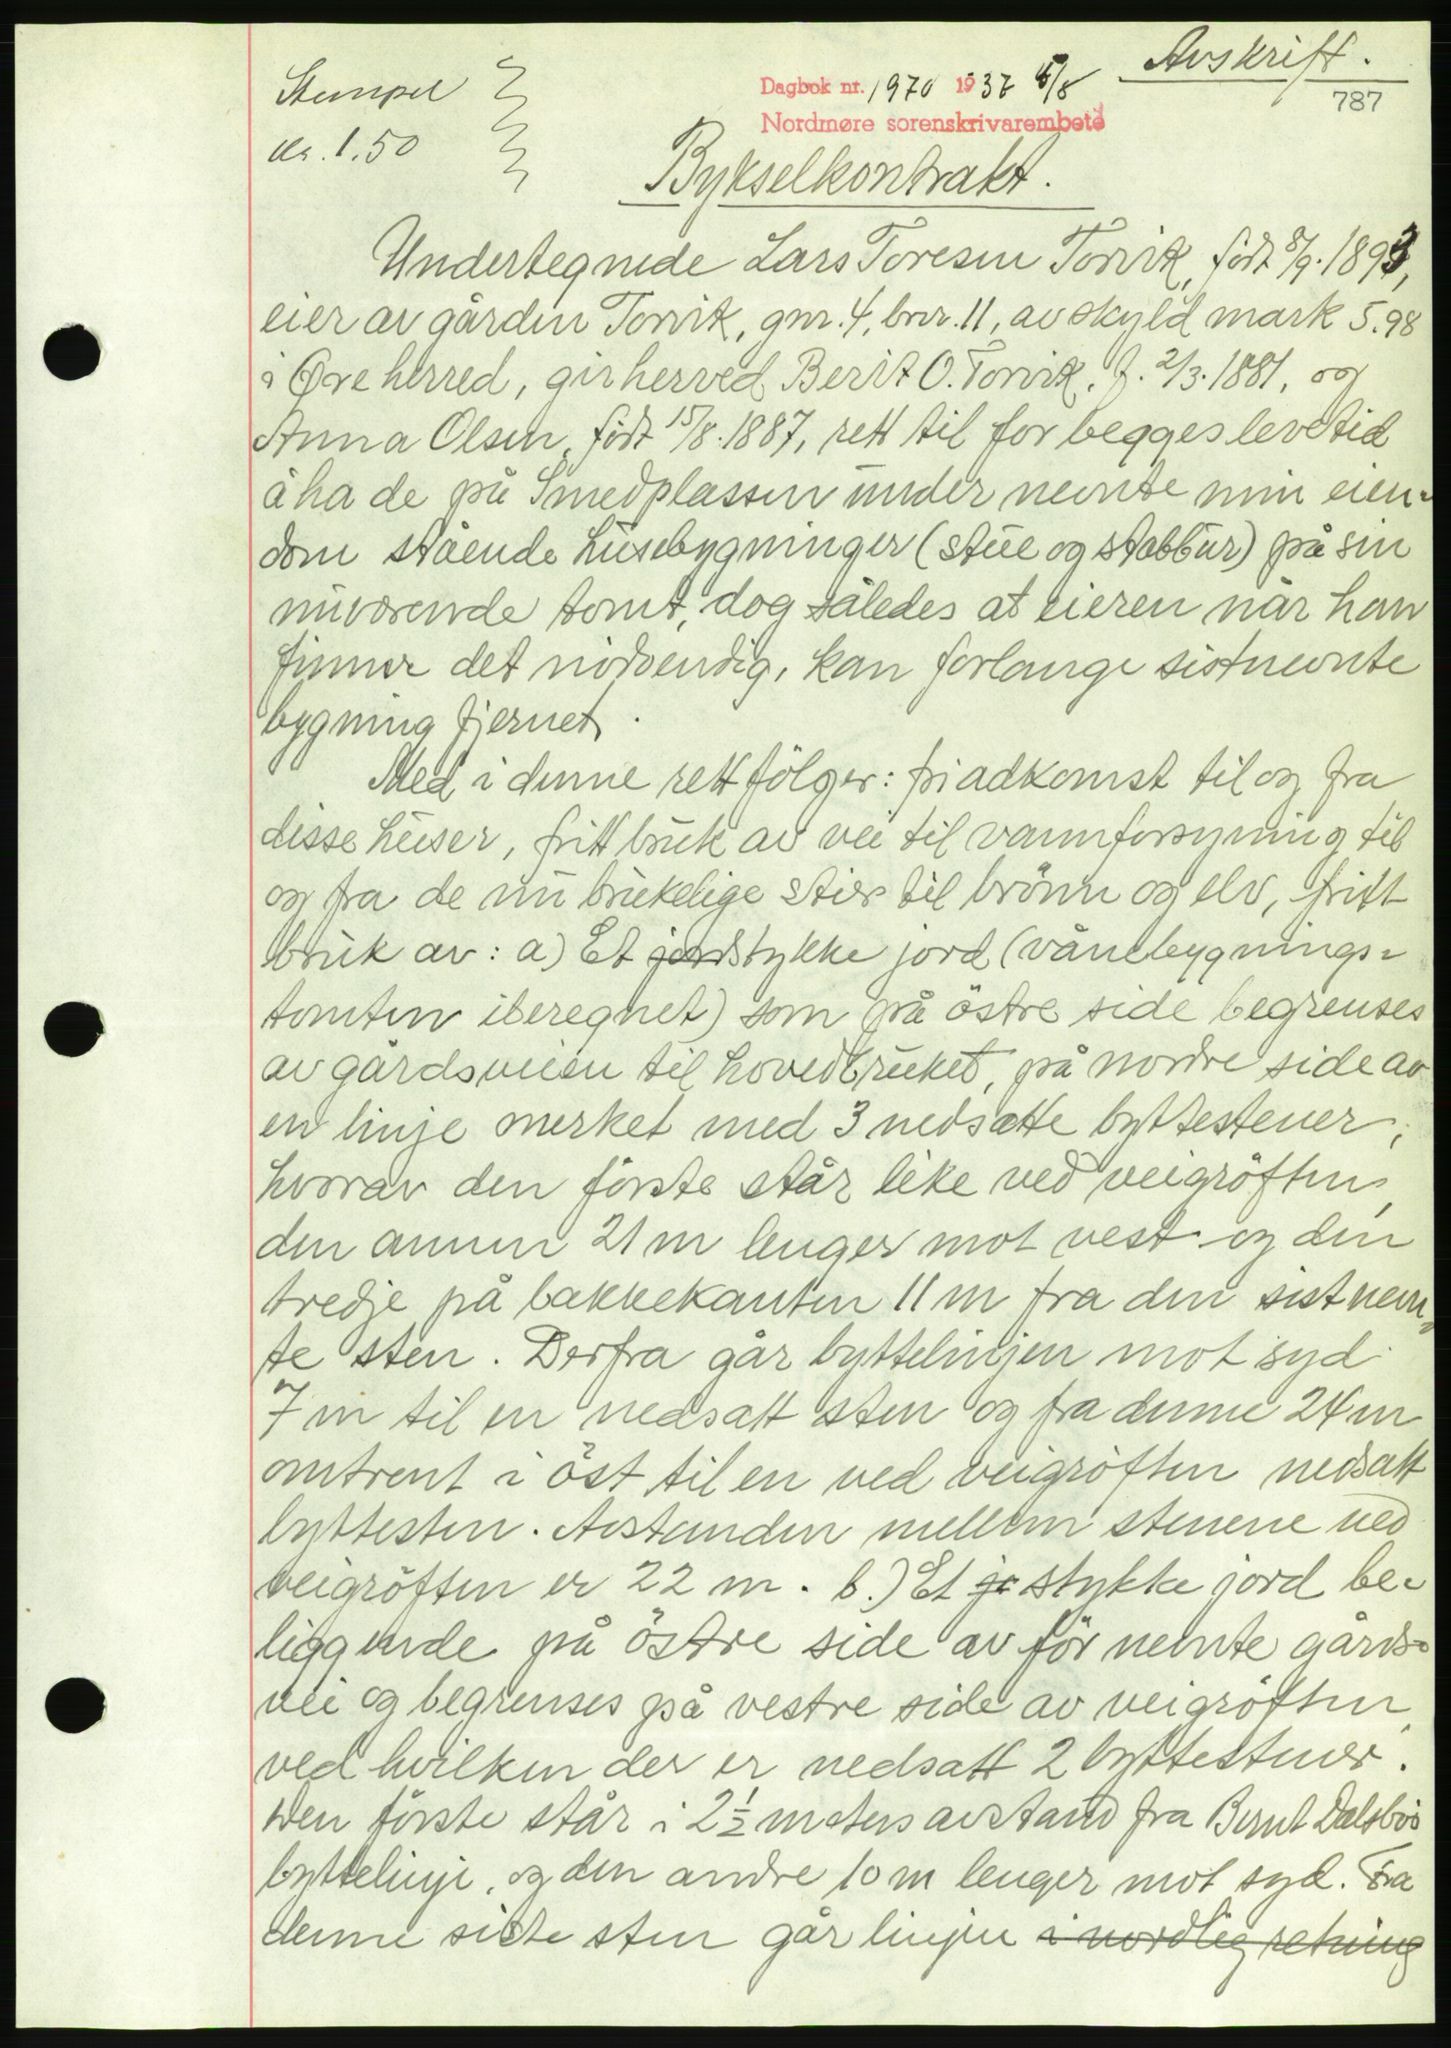 Avskrift.
Stempel
kr. 1.50
Dagbok nr. 1970 1937 5/8
787
Nordmøre sorenskrivarembete
Bykselkontrakt.
Undertegnede Lars Toresen Torvik, født 8/9.1893,
eier av gården Torvik, gnr. 4, bnr. 11, av skyld mark 5.98
i Øre herred, gir herved Berit O. Torvik, f. 2/3.1881, og
Anna Olsen, født 15/8.1887, rett til for begges levetid
å ha de på Smedplassen under nevnte min eien-
dom stående husebygninger (stue og stabbur) på sin
nuværende tomt, dog således at eieren når han
finner det nödvendig, kan forlange sistnevnte
bygning fjernet.
Med i denne rett fölger: fri adkomst til og fra
disse huser, fritt bruk av vei til vannforsyning til
og fra de nu brukelige stier til brönn og elv, fritt
bruk av: a) Et jordstykke jord (vånebygnings-
tomten iberegnet) som på östre side begrenses
av gårdsveien til hovedbruket, på nordre side av
en linje merket med 3 nedsatte byttestener,
hvorav den förste står like ved veigröften,
den annen 21 m lenger mot vest og den
tredje på bakkekanten 11 m fra den sistnevn-
te sten. Derfra går byttelinjen mot syd
7 m til en nedsatt sten og fra denne 24 m
omtrent i öst til en ved veigröften nedsatt
byttesten. Avstanden mellem stenene ved
veigröften er 22 m. b.) Et je stykke jord be-
liggende på östre side av för nevnte gårds-
vei og begrenses på vestre side av veigröften,
ved hvilken der er nedsatt 2 byttestener.
Den förste står i 2 1/2 meters avstand fra Bernt Dalsbös
byttelinje, og den andre 10 m lenger mot syd. Fra
denne siste sten går linjen i nordlig retning